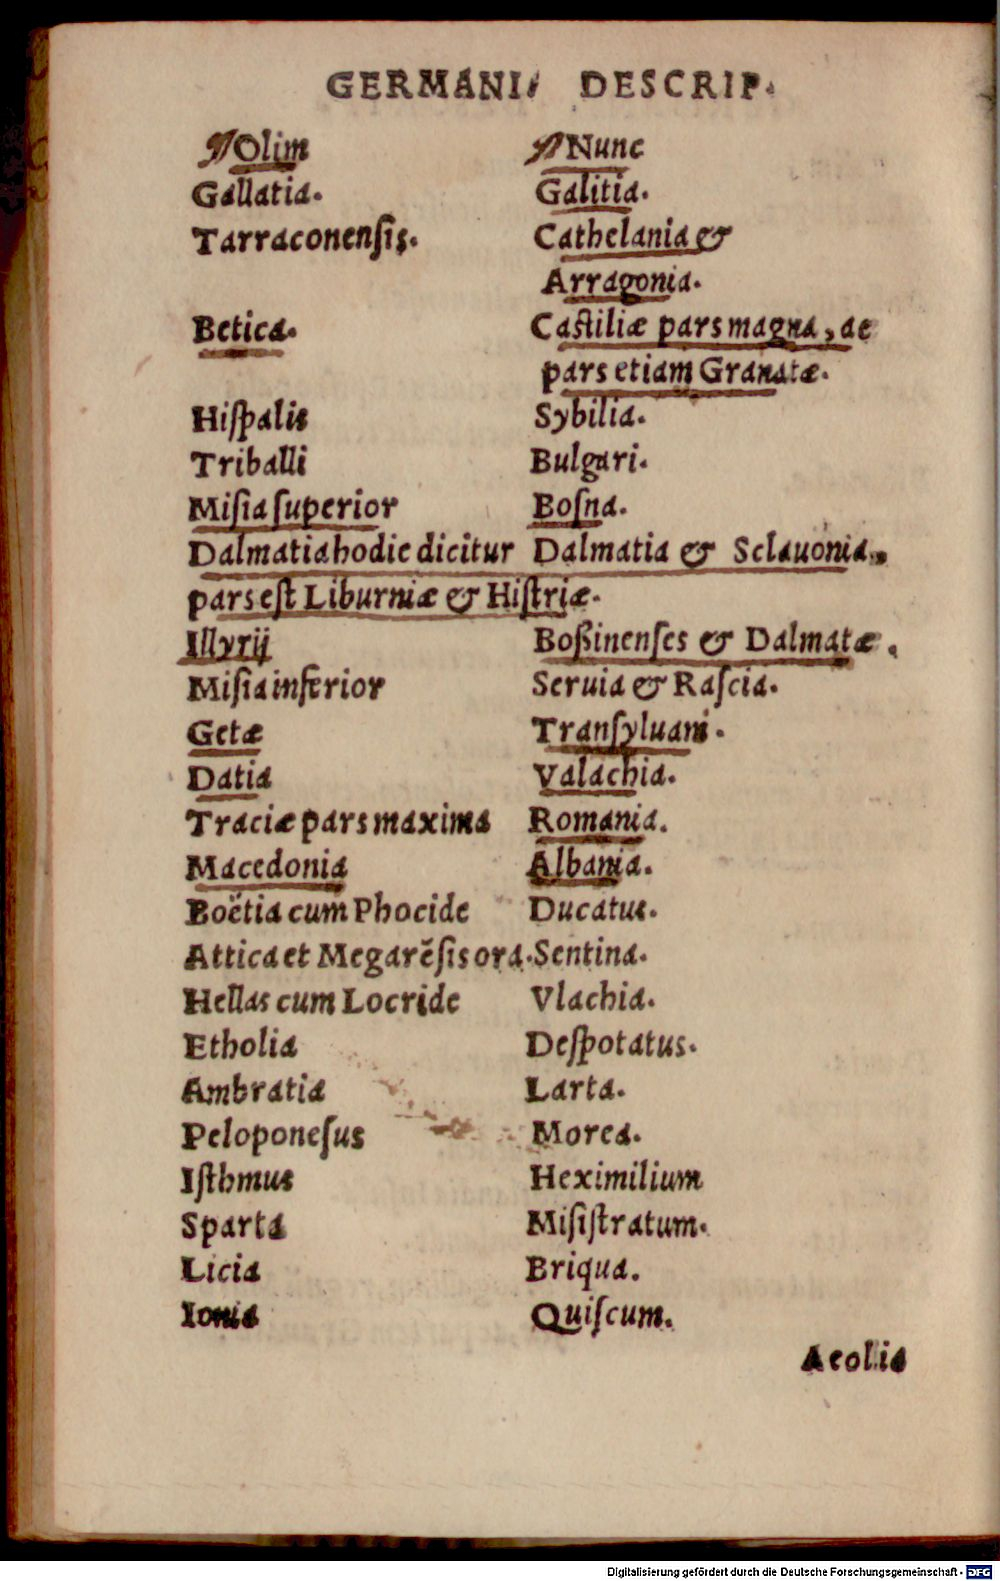 GERMANI&AElig; DESCRIP.
¶Olim ¶Nunc
Gallatia. Galitia.
Tarraconenſis. Cathelania &
Arragonia.
Betica. Caſtiliæ pars magna, ac
pars etiam Granatæ.
Hiſpalis Sybilia.
Triballi Bulgari.
Miſia ſuperior Boſna.
Dalmatia hodie dicitur Dalmatia & Sclauonia,
pars eſt Liburniæ & Hiſtriæ.
Illyrij Boßinenſes & Dalmatæ.
Miſia inferior Seruia & Raſcia.
Getæ Tranſyluani.
Datia Valachia.
Traciæ pars maxima Romania.
Macedonia Albania.
Boëtia cum Phocide Ducatus.
Attica et Megarẽſis ora. Sentina.
Hellas cum Locride Vlachia.
Etholia Deſpotatus.
Ambratia Larta.
Peloponeſus Morea.
Iſthmus Heximilium
Sparta Miſiſtratum.
Licia Briqua.
Ionia Quiſcum.
Aeolia
Digitalisierung gefördert durch die Deutsche Forschungsgemeinschaft - DFG